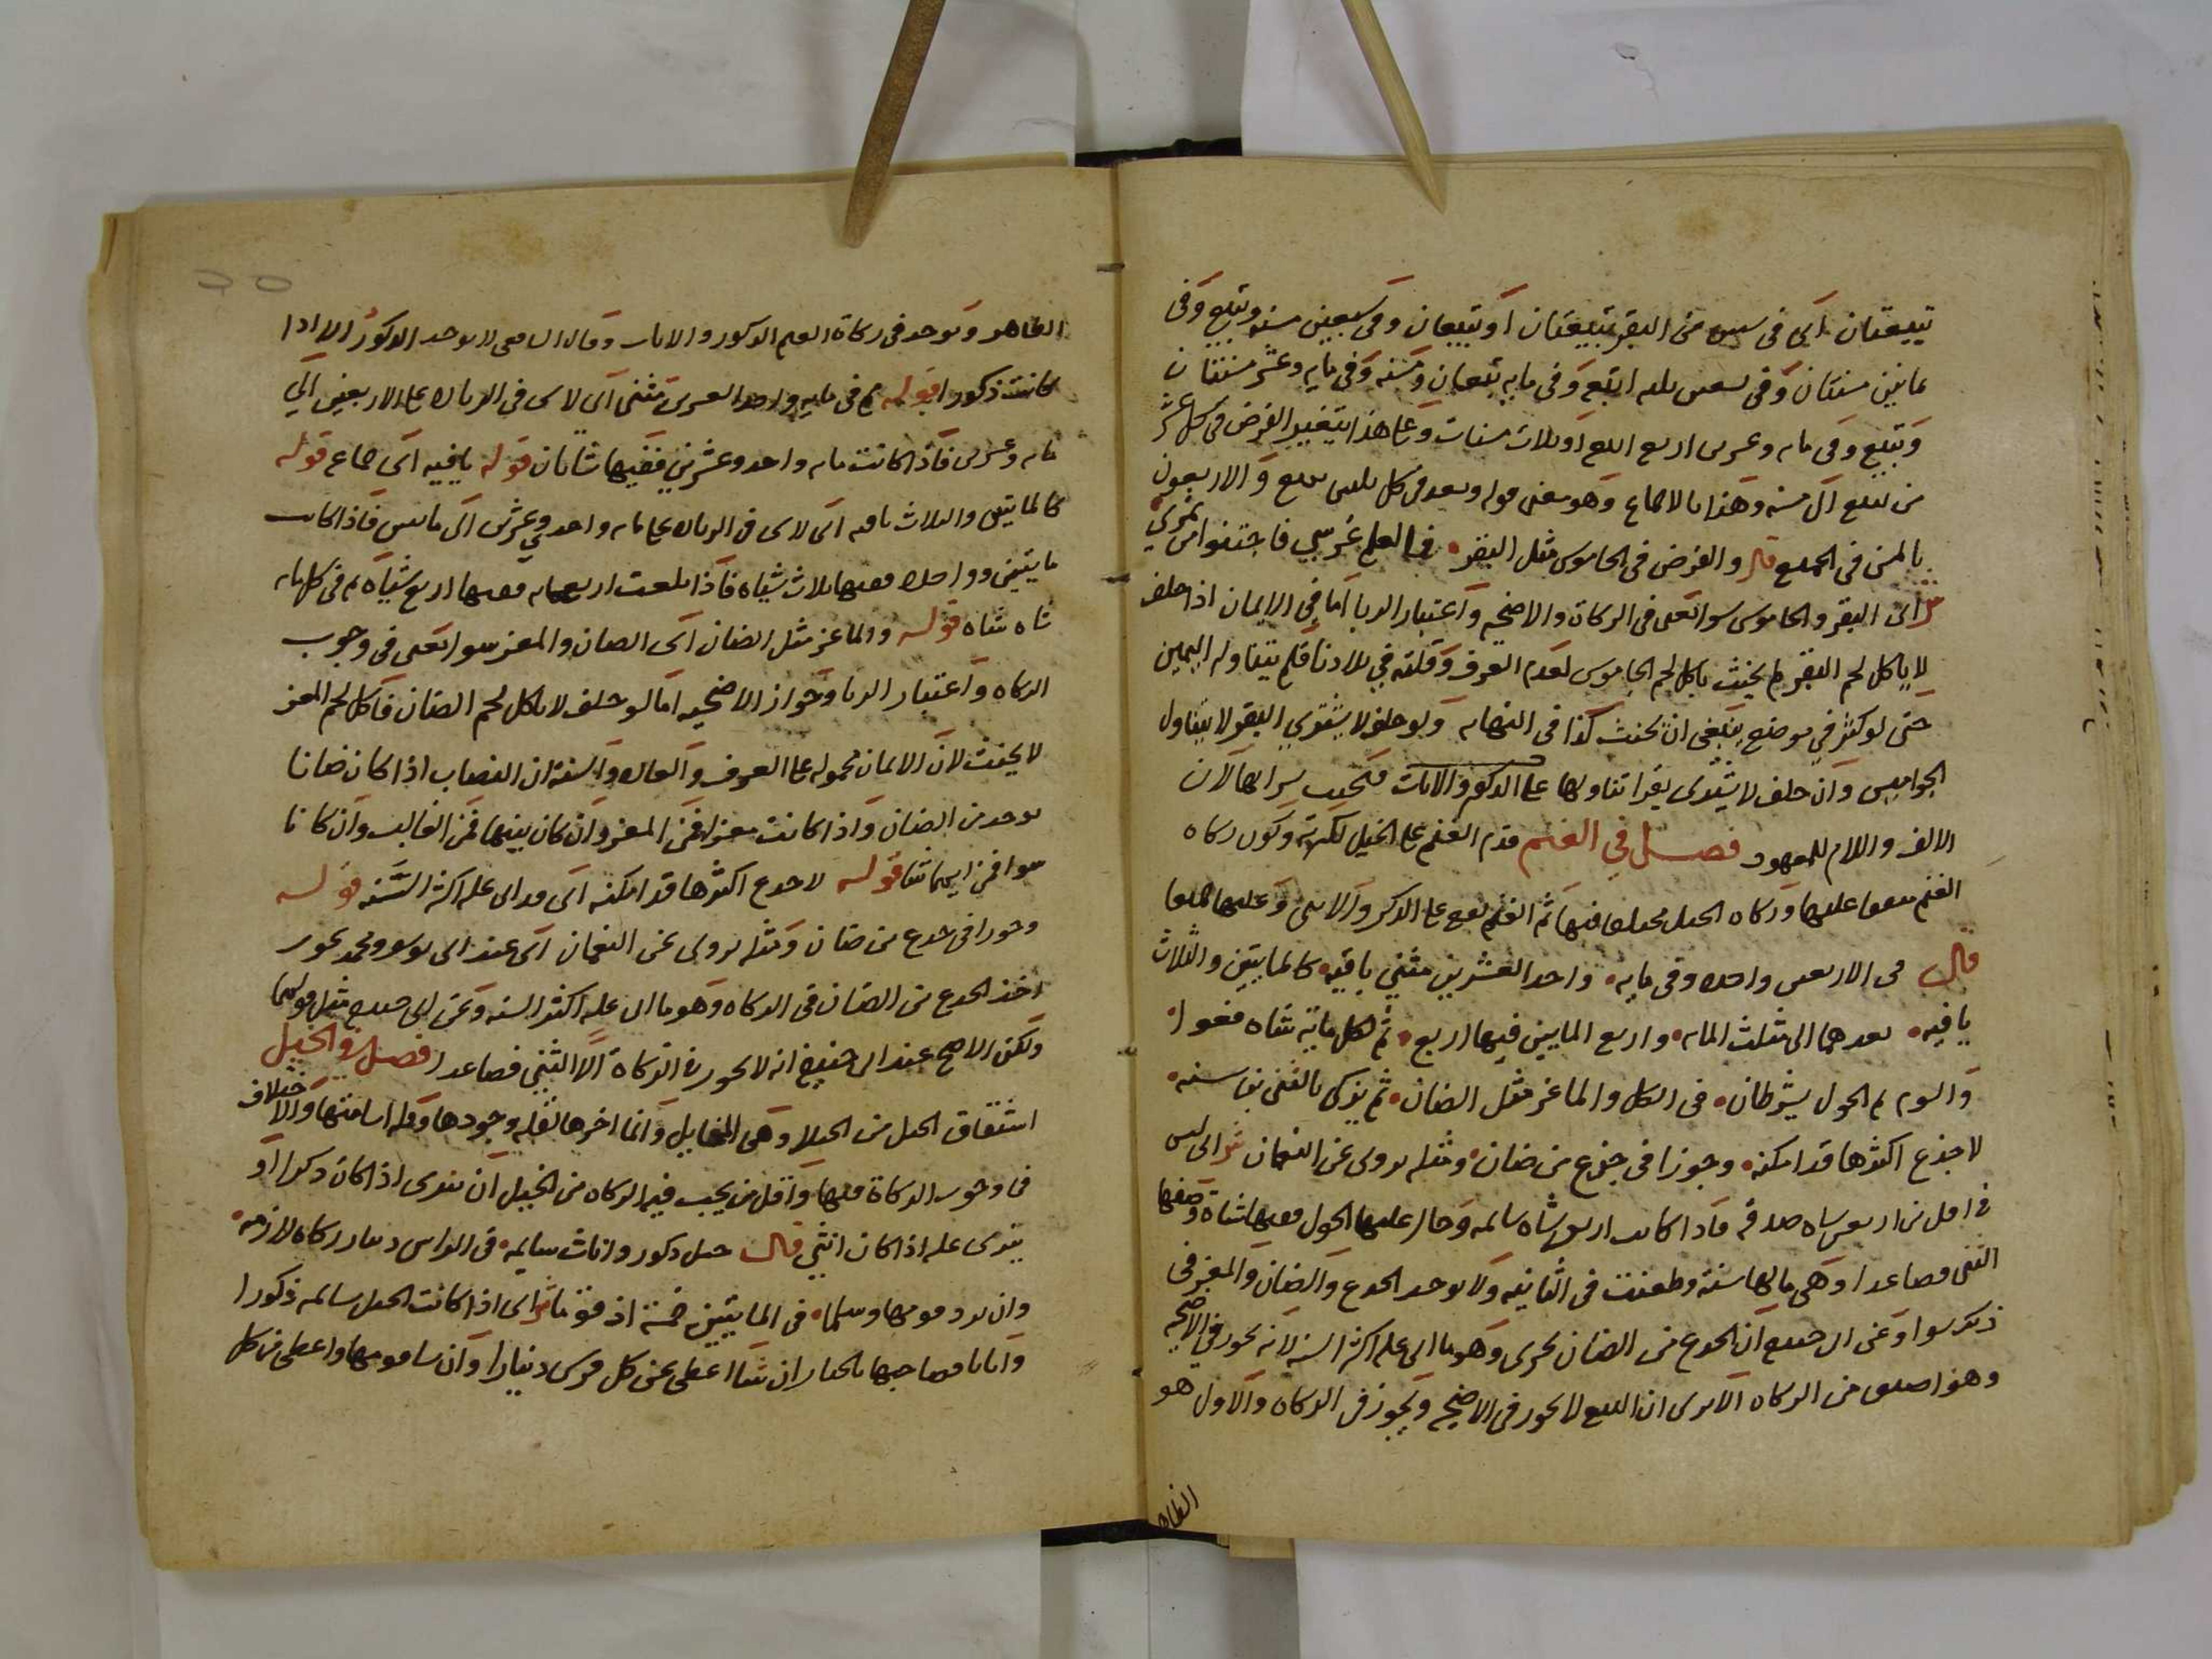 تبيعتان اى فى ستين من البقر تبيعتان او تبيعان وفى سبعين مسنه وتبيع وفى
ثمانين مسنتان وفى تسعين ثلثه اتبعه وفى مايه تبيعان ومسنه وفى مايه وعشر مسنتان
وتبيع وفى مايه وعشرين اربع اتبعه او ثلاث مسنات وعلى هذا يتغير الفرض فى كل عشر
من تبيع الى مسنه وهذا بالاجماع وهو معنى قوله وبعد فى كل ثلثين تبيع والاربعون
بالمسن فى الجميع قال والفرض فى الجاموس مثل البقر فاجتنوا من
ش اى البقر والجاموس سوا يعنى فى الزكاة والاضحيه واعتبار الربا اما فى الايمان اذا حلف
لا ياكل لحم البقر لم يحنث باكل لحم الجاموس لعدم العرف وقلته في بلادنا فلم يتناوله اليمين
حتى لو كثر في موضع ينبغى ان يحنث كذا فى النهايه ولو حلف لا يشترى البقر لا يتناول
الجواميس وان حلف لا يشترى بقرا تناولها على الذكور والاناث فيحنث بشرايها لان
الالف واللام للمعهود فصل في الغنم قدم الغنم على الخيل لكثرته وكون زكاه
الغنم متفقا عليها وزكاه الخيل مختلفا فيها ثم الغنم يقع على الذكر والانثى وعليهما جميعا
قال فى الاربعين واحده وفى مايه واحد العشرين مثنى يافيه كالمايتين والثلاث
يافيه بعدهما الى مثلث المايه واربع المايين فيها اربع ثم لكل ماية شاه فعوا
والسوم ثم الحول يشرطان فى الكل والماعز مثل الضان ثم يزكى بالثنى بن سنه
لا جذع اكثرها قد امكنه وجوزا فى جذع من ضان ومثله يروى عن النعمان ش اى ليس
فى اقل من اربعين شاه صدقه فاذا كانت اربعين شاه سالمه وحال عليها الحول ففيها شاة وصفها
الثنى فصاعدا وهى مالها سنة وطعنت فى الثانيه ولا يوخذ الجذع والضان والمعز فى
ذلك سوا وعن ابى حنيفه ان الجذع من الضان يجزى وهو ما اتى عليه اكثر السنه لانه يجوز فى الاضحيه
وهو اضيق من الزكاه الا ترى ان التبيع لا يجوز فى الاضحيه ويجوز فى الزكاه والاول هو
الظاهر
الظاهر وتوخذ فى زكاة الغنم الذكور والاناث وقال الشافعى لا يوخذ الذكور الا اذا
كانت ذكورا قوله ثم فى مايه واحد العشرين مثنى اى لا شى فى الزياده على الاربعين الي
مايه وعشرين فاذا كانت مايه واحد وعشرين ففيها شاتان قوله يافيه اى جماع قوله
كالمايتين والثلاث يافيه اى لا شى فى الزياده على مايه واحد وعشرين الى مايتين فاذا كانت
مايتين وواحده ففيها ثلاث شياه فاذا بلغت اربعمايه ففيها اربع شياه ثم فى كل مايه
شاه شاه قوله والماعز مثل الضان اى الضان والمعز سوا يعنى فى وجوب
الزكاه واعتبار الربا وجواز الاضحيه اما لو حلف لا ياكل لحم الضان فاكل لحم المعز
لا يحنث لان الايمان محموله على العرف والعاده والسنة ان النصاب اذا كان ضانا
يوخذ من الضان واذا كانت معزا فمن المعز وان كان بينهما فمن الغالب وان كانا
سوا فمن ايهما شا قوله لا جذع اكثرها قد امكنه اى قد اتى عليه اكثر السنه قوله
وجوزا فى جذع من ضان ومثله يروى عن النعمان اى عند ابى يوسف ومحمد يجوز
اخذ الجذع من الضان فى الزكاه وهو ما اتى عليه اكثر السنه وعن ابى حنيفه مثل قولهما
ولكن الاصح عند ابى حنيفه انه لا يجوز فى الزكاة الا الثنى فصاعدا فصل فى الخيل
اشتقاق الخيل من الخيلا وهى التمايل وانما اخرها لقله وجودها وقله اسامتها والاختلاف
فى وجوب الزكاة فيها واقل من يجب فيه الزكاه من الخيل ان يترى اذا كان ذكرا او
يترى عليه اذا كان انثى قال خيل ذكور واناث سايمه فى الراس دينار زكاه لازمه
وان يرد قومها وسلما فى المايتين خمسة اذ قوما ش اى اذا كانت الخيل سالمه ذكورا
واناثا فصاحبها بالخيار ان شا اعطى عن كل فرس دينارا وان شا قومها واعطى من كل